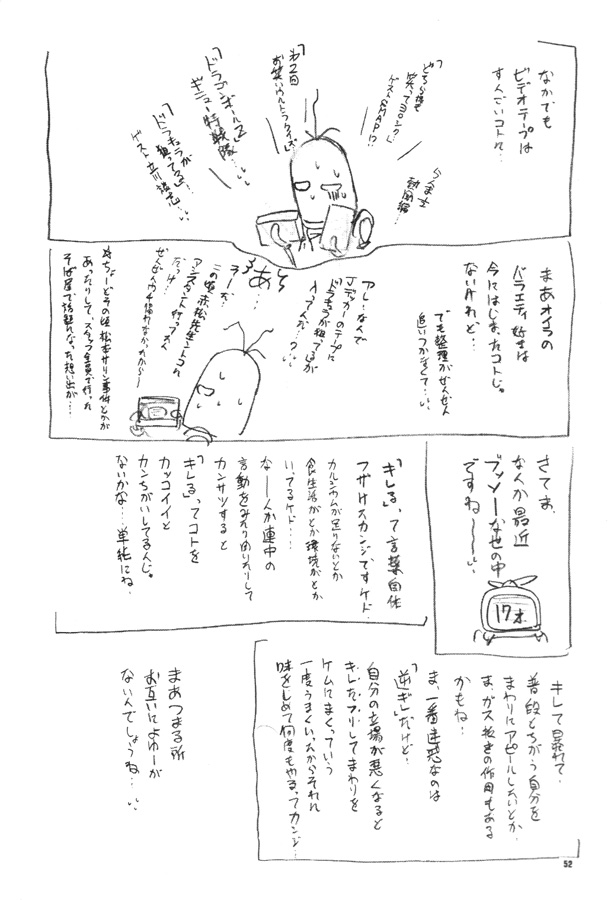 なかでも
ビデオテープは
すんごいコトに…
「どちら様も
笑ってヨロシク」
ゲストSMAP!?
らんま½
動画編…
「第2回
お笑いウルトラクイズ」
「ドラゴンボールZ」
ギニュー特戦隊…
「ドラキュラが
狙ってる」
まあオイラの
バラエティ好きは
今にはじまったコトじゃ
ないけれど…
でも整理がぜんぜん
追いつかなくて…
アレ…なんで
Jデッカーのテープに
ドラキュラが狙ってるが
入ってんだ…?
あっ
そろ…
うーだ…
この頃赤松先生んトコに
アシスタント行ってたん
だっけ…
☆ちょーどその頃松本サリン事件とかが
あったりして、スタッフ全員で行った
そば屋で話題になった想い出が…
さてま、
なんか最近
ブッソーな世の中
ですね〜〜…
17才
「キレる」って言葉自体
フザけたカンジですケド…
カルシウムが足りないとか
食生活がとか環境がとか
いってるケド…
なーんか連中の
言動をみたりきいたりして
カンサツすると
「キレる」ってコトを
カッコイイと
カンちがいしてるんじゃ
ないかな…単純にね…
キレて暴れて、
普段とちがう自分を
まわりにアピールしたいとか、
ま、ガス抜きの作用もある
かもね…
ま、一番迷惑なのは
「逆ギレ」だけど…
自分の立場が悪くなると
キレたフリしてまわりを
ケムにまくっていう
一度うまくいったからそれに
味をしめて何度もやるってカンジ…
まあつまる所
お互いによゆーが
ないんでしょうね…
52